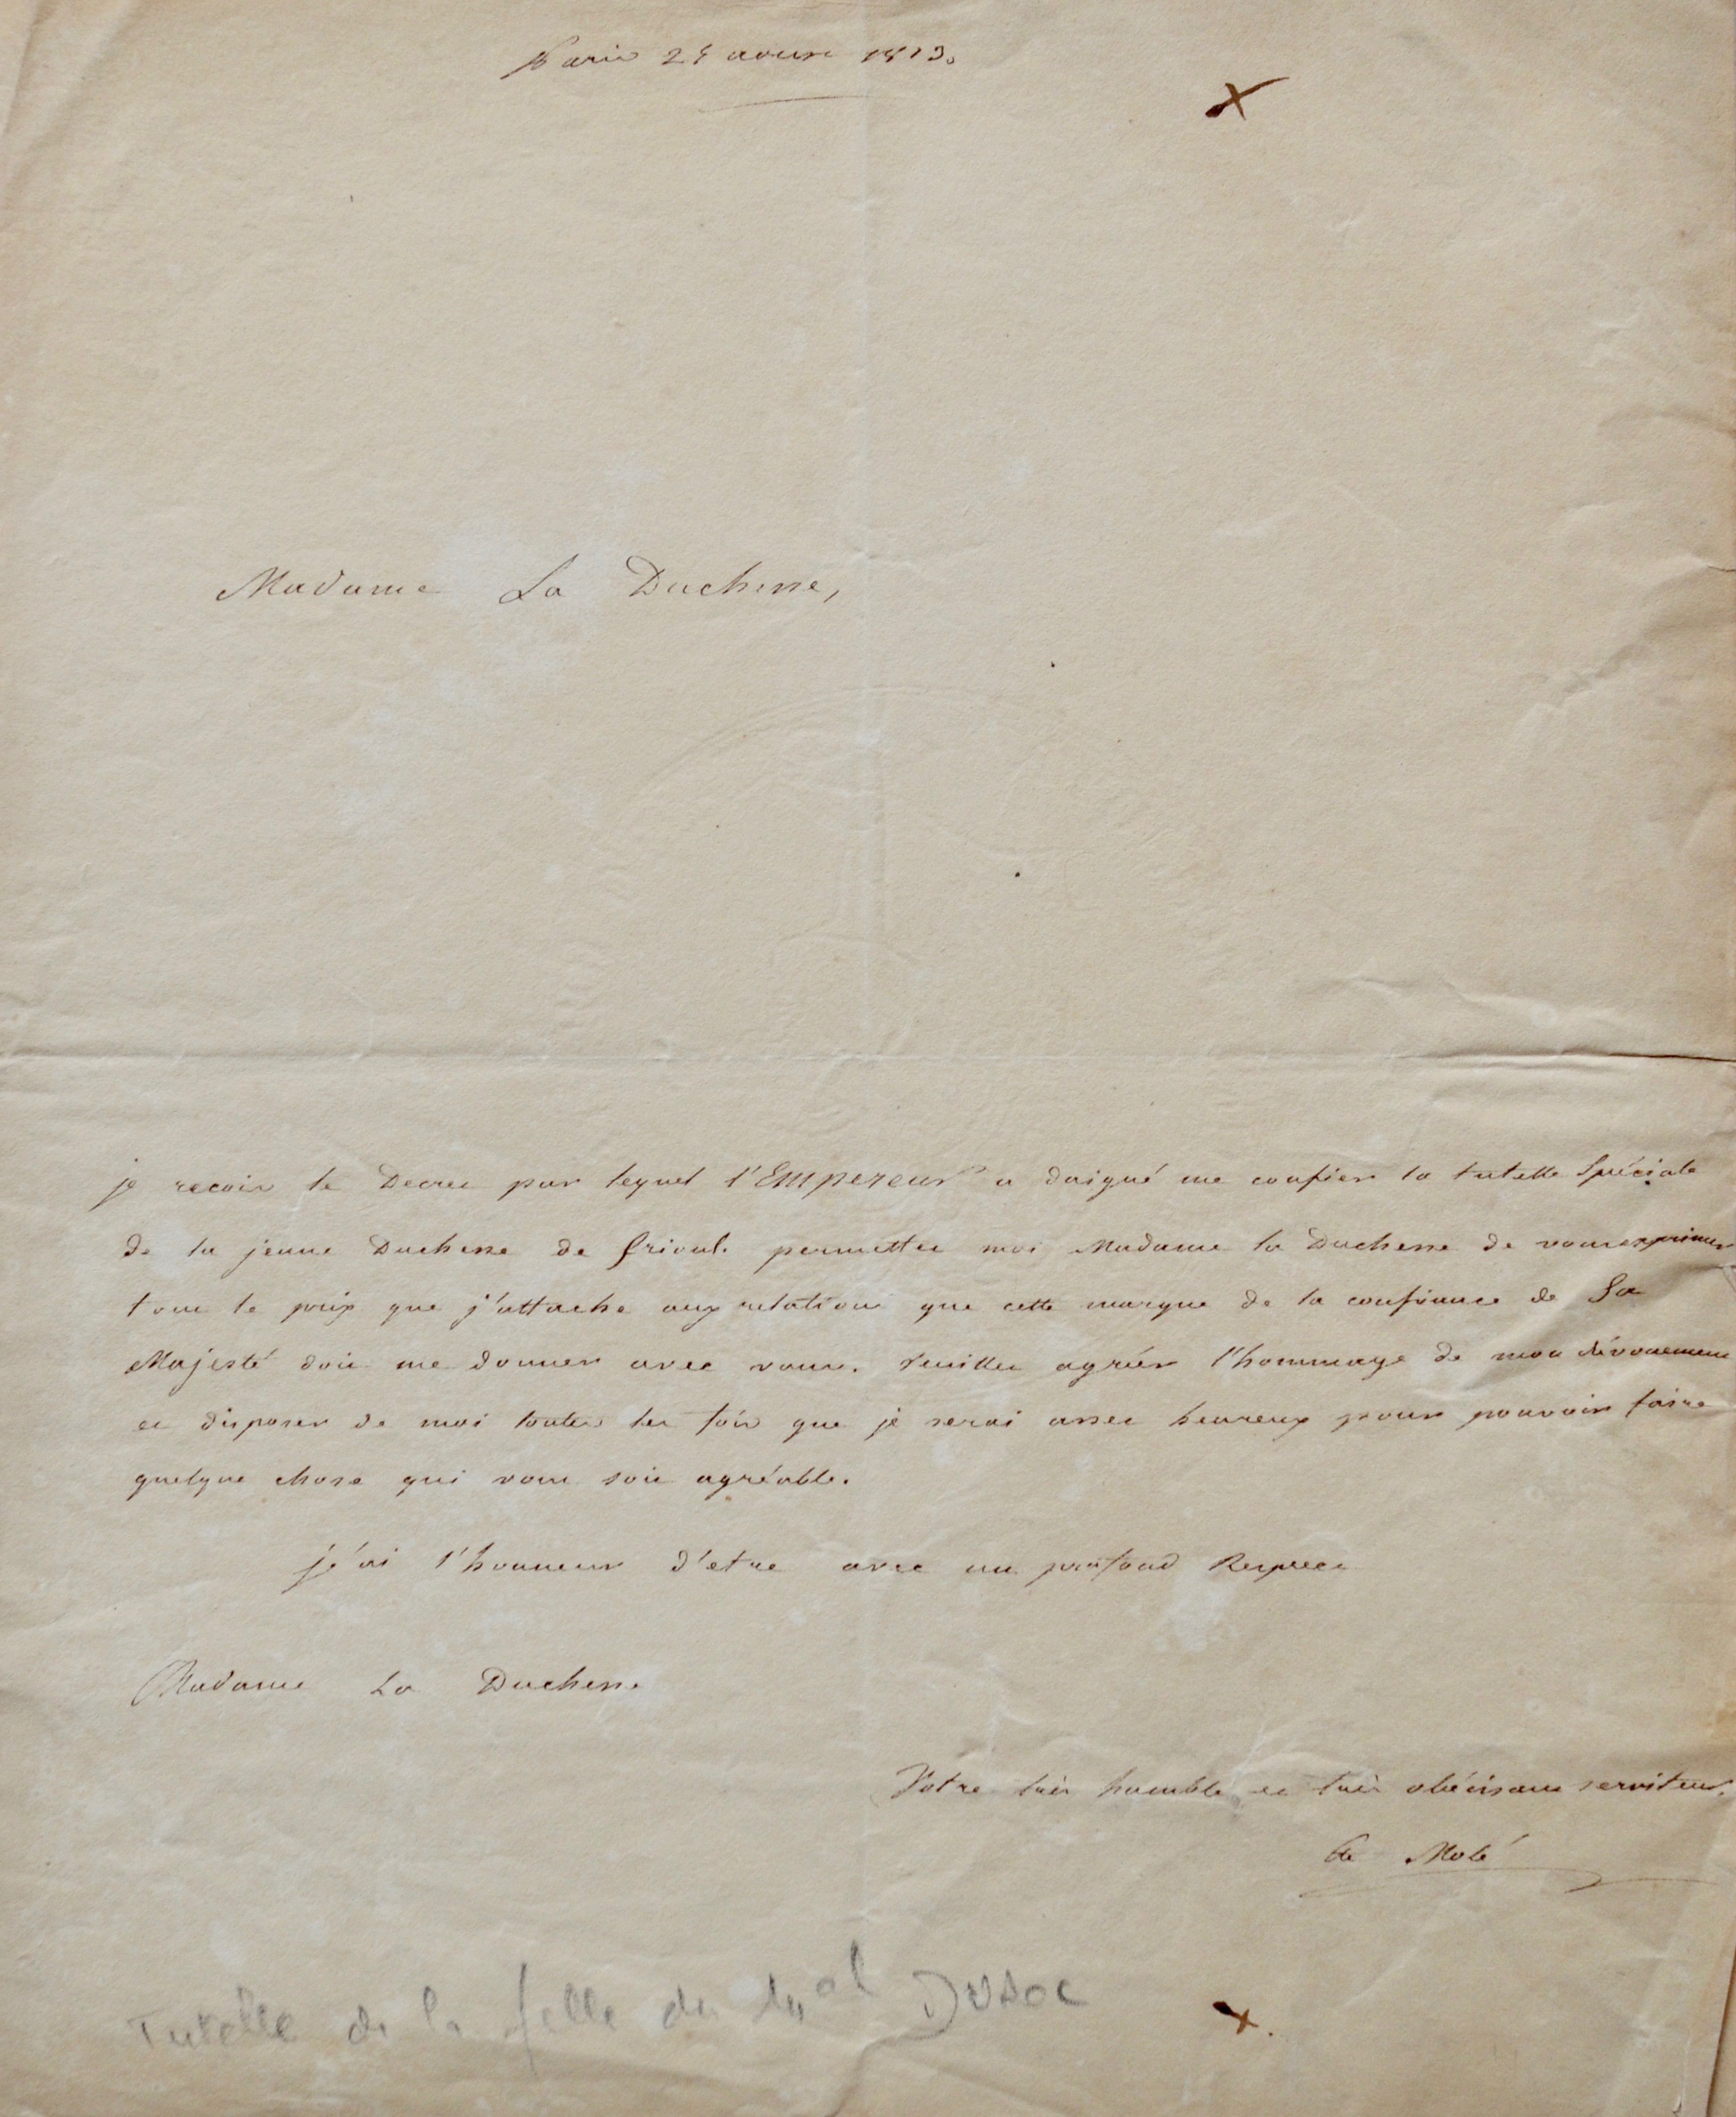 Paris 25 aoust 1813.
Madame La Duchesse,
je recois le Decret par lequel l'Empereur a daigné me confier la tutelle Spéciale
de la jeune Duchesse de frioul. permettez moi Madame la Duchesse de vous exprimer
tout le prix que j'attache aux relations que cette marque de la confiance de Sa
Majesté doit me donner avec vous. veuillez agréer l'hommage de mon dévouement
et disposer de moi toutes les fois que je serai assez heureux pour pouvoir faire
quelque chose qui vous soit agréable.
j'ai l'honneur d'etre avec un profond Respect
Madame La Duchesse
Votre très humble et très obéissant serviteur.
Cte Molé
Tutelle de la fille du Mal Duroc